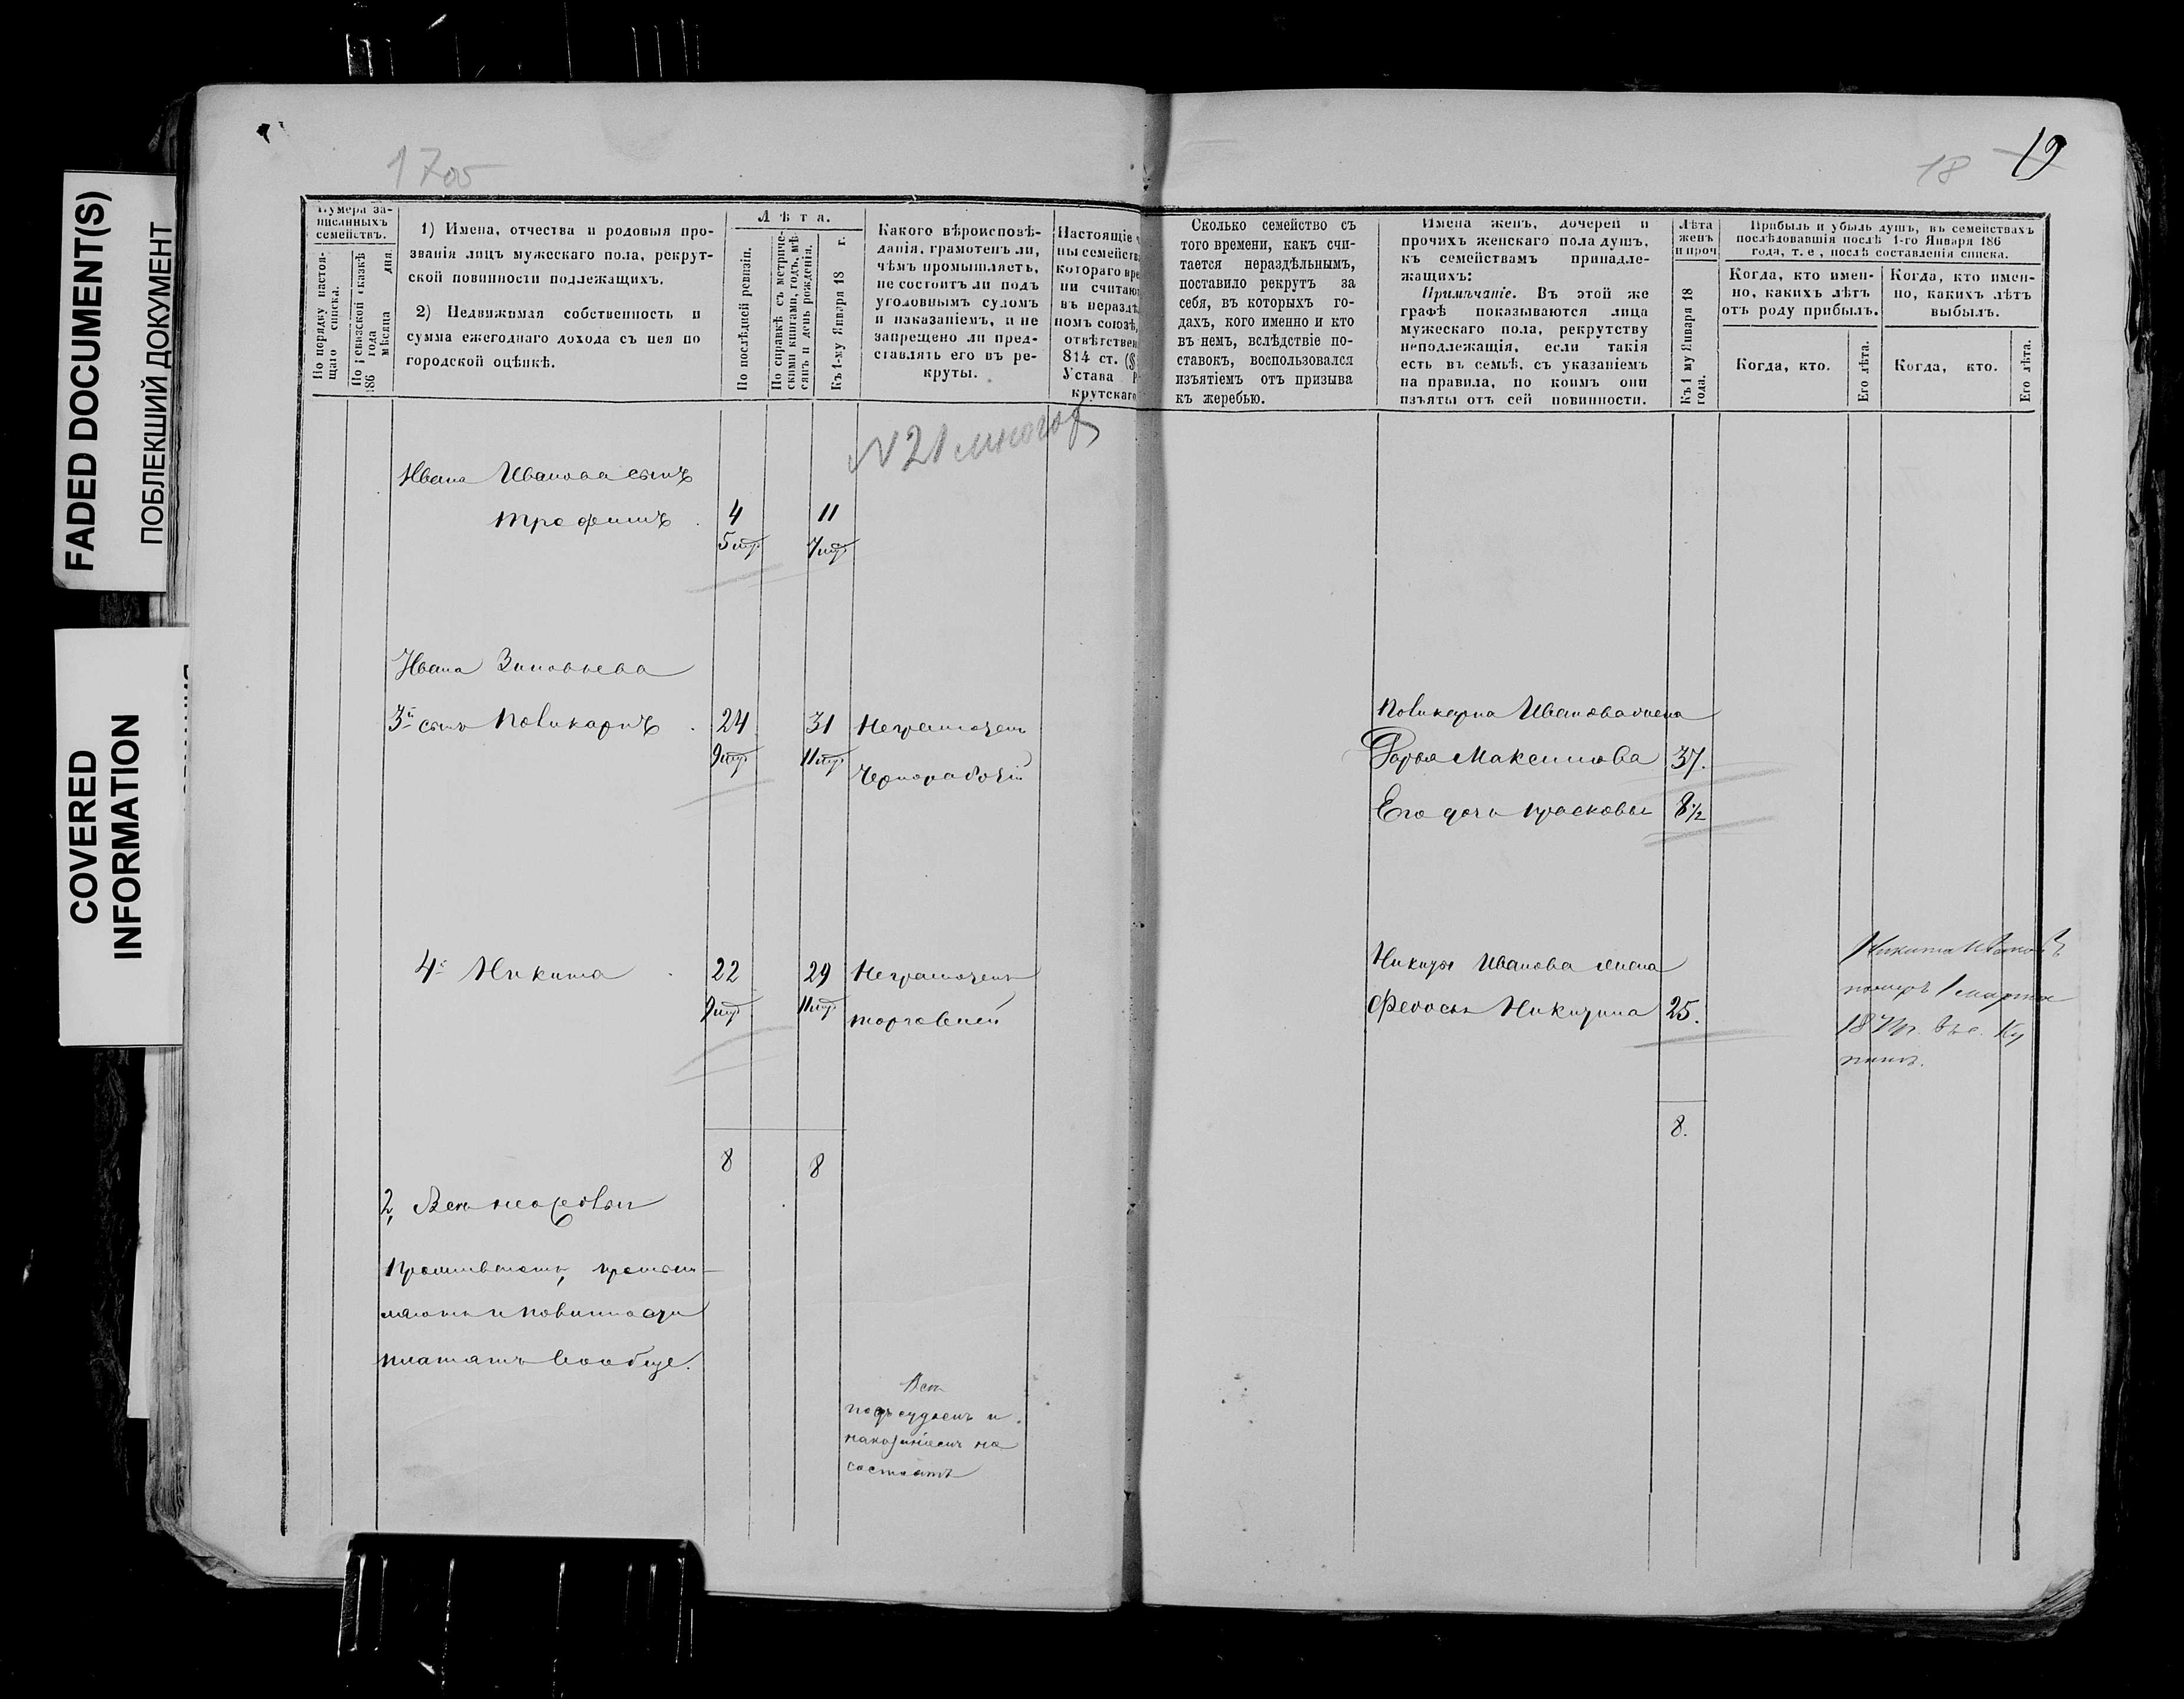 FADED DOCUMENT(S)
ПОБЛЕКШИЙ ДОКУМЕНТ
COVERED
INFORMATION
1700
18
19
Нумера за-
писанныхъ
семействъ.
По порядку настоя-
щаго списка.
По ревизской сказкѣ
186 года
мѣсяца дня.
1) Имена, отчества и родовыя про-
званія лицъ мужескаго пола, рекрут-
ской повинности подлежащихъ.
2) Недвижимая собственность и
сумма ежегоднаго дохода съ нея по
городской оцѣнкѣ.
Лѣта.
По послѣдней ревизіи.
По справкѣ съ метриче-
скими книгами, годъ, мѣ-
сяцъ и день рожденія.
Къ 1-му Января 18 г.
Какого вѣроисповѣ-
данія, грамотенъ ли,
чѣмъ промышляетъ,
не состоитъ ли подъ
уголовнымъ судомъ
и наказаніемъ, и не
запрещено ли пред-
ставлять его въ ре-
круты.
Настоящіе
ны семейств
котораго вре
ни считаю
въ неразд
номъ союзѣ,
отвѣтствен
814 ст. (§
Устава Р
крутскаго
Сколько семейство съ
того времени, какъ счи-
тается нераздѣльнымъ,
поставило рекрутъ за
себя, въ которыхъ го-
дахъ, кого именно и кто
въ немъ, вслѣдствіе по-
ставокъ, воспользовался
изъятіемъ отъ призыва
къ жеребью.
Имена женъ, дочерей и
прочихъ женскаго пола душъ,
къ семействамъ принадле-
жащихъ:
Примѣчаніе. Въ этой же
графѣ показываются лица
мужескаго пола, рекрутству
неподлежащія, если такія
есть въ семьѣ, съ указаніемъ
на правила, по коимъ они
изъяты отъ сей повинности.
Лѣта
женъ
и проч
Къ 1 му Января 18
года.
Прибыль и убыль душъ, въ семействахъ
послѣдовавшія послѣ 1-го Января 186
года, т. е, послѣ составленія списка.
Когда, кто имен-
но, какихъ лѣтъ
отъ роду прибылъ.
Когда, кто имен-
но, какихъ лѣтъ
выбылъ.
Когда, кто.
Его лѣта.
Когда, кто.
Его лѣта.
N 21
Ивана Иванова сынъ
Трофимъ . 4 11
Ивана Зиновьева
3й сынъ Поликарпъ . 24 31 Неграмотенъ
Чернорабочій
Поликарпа Иванова жена
Дарья Максимова 37.
Его дочь Прасковья 8½
4й Никита 22 29 Неграмотенъ
торговлей
Никиты Иванова жена
Федосья Никитина 25.
Никита Ивановъ
померъ 1 марта
8 8
8.
2, Всѣ
повинности
платятъ вообще.
Всѣ
подъ судомъ и
наказаніемъ не
состоятъ